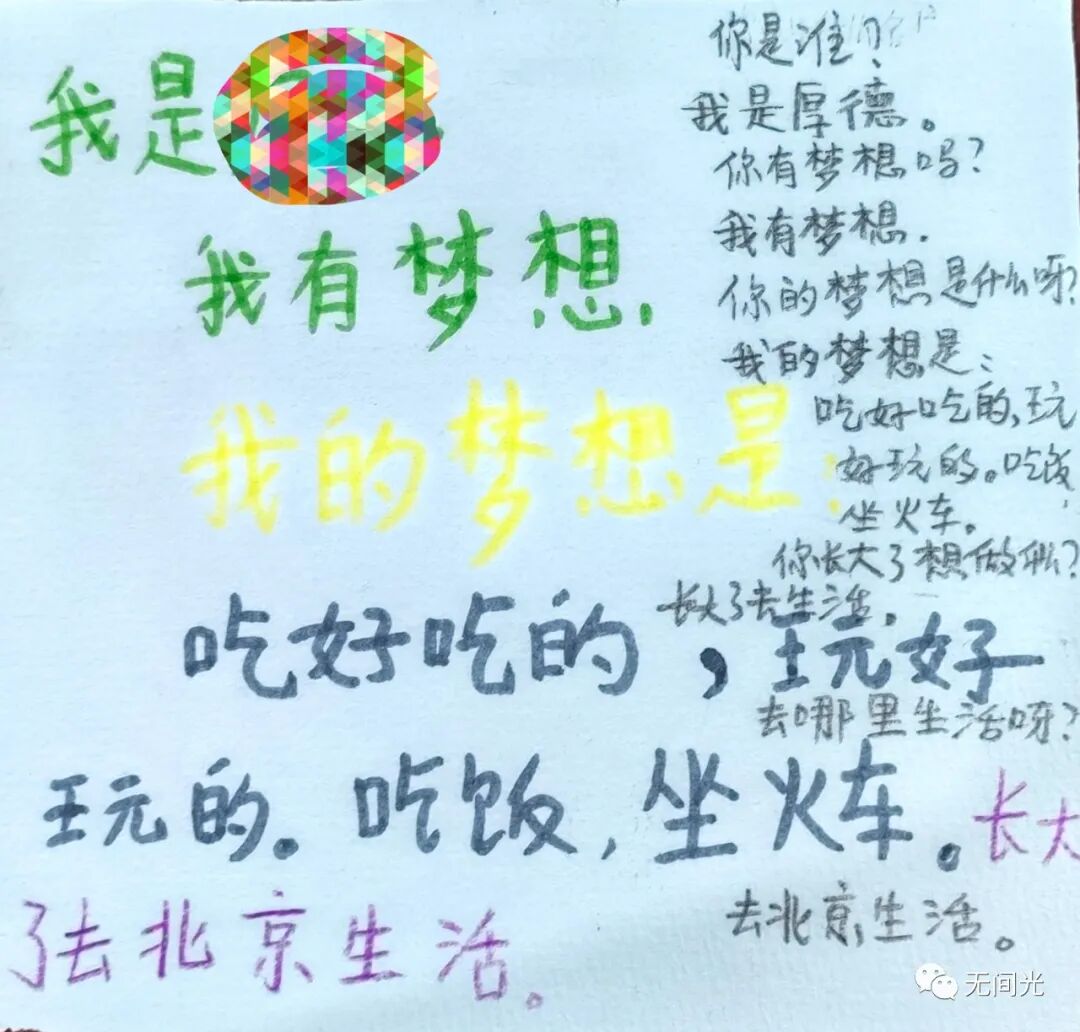 我是
我有梦想.
我的梦想是:
吃好吃的,玩好
玩的。吃饭,坐火车。长大
了去北京生活。
你是谁?
我是厚德。
你有梦想吗?
我有梦想.
你的梦想是什么呀?
我的梦想是:
吃好吃的,玩
好玩的。吃饭,
坐火车。
你长大了想做什么?
长大了去生活.
去哪里生活呀?
去北京生活。
无间光